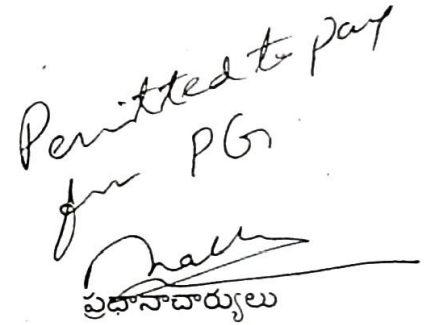 Permitted to pay
for PG
ప్రధానాచార్యులు